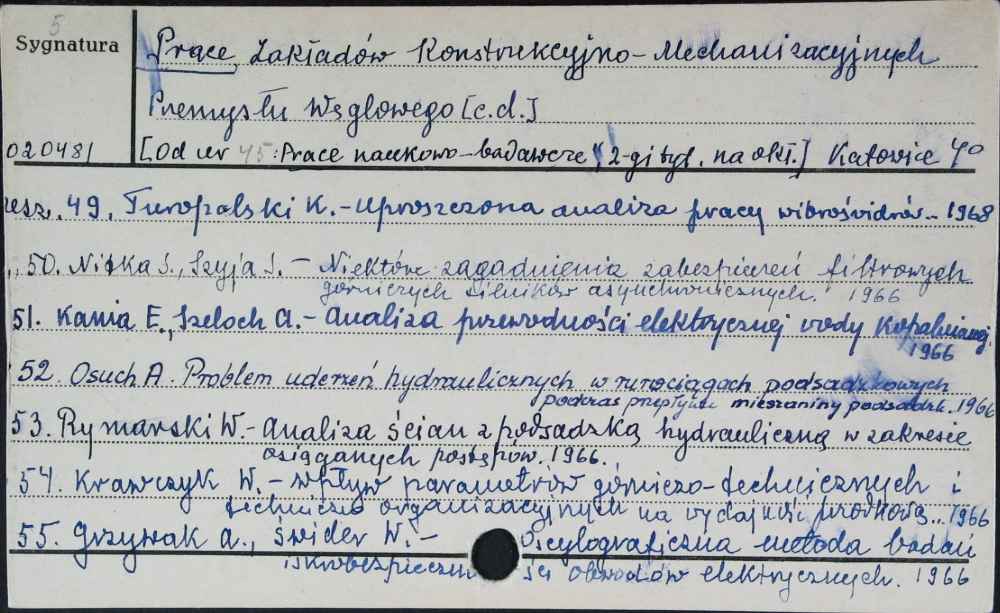 5
Sygnatura
Prace Zakładów Konstrukcyjno-Mechanizacyjnych
Przemysłu Węglowego [c.d.]
020481 [Od nr 45: Prace naukowo-badawcze, 2-gi tyt. na okł.] Katowice 40
zesz. 49. Turopolski K. - Uproszczona analiza pracy wibroświdrów.. 1968
„ 50. Niška J., Szyja J. - Niektóre zagadnienia zabezpieczeń filtrowych
górniczych silników asynchronicznych. 1966
51. Kania E., Szeloch A. - Analiza przewodności elektrycznej wody kopalnianej
1966
52. Osuch A. Problem uderzeń hydraulicznych w rurociągach podsadzkowych
podczas przepływu mieszaniny podsadzk. 1966
53. Rymarski W. - Analiza ścian z podsadzką hydrauliczną w zakresie
osiąganych postępów. 1966.
54. Krawczyk W. - Wpływ parametrów górniczo-technicznych i
techniczno organizacyjnych na wydajność przodkową... 1966
55. Grzywak A., Świder W. - Oscylograficzna metoda badań
iskrobezpieczn ści obwodów elektrycznych. 1966